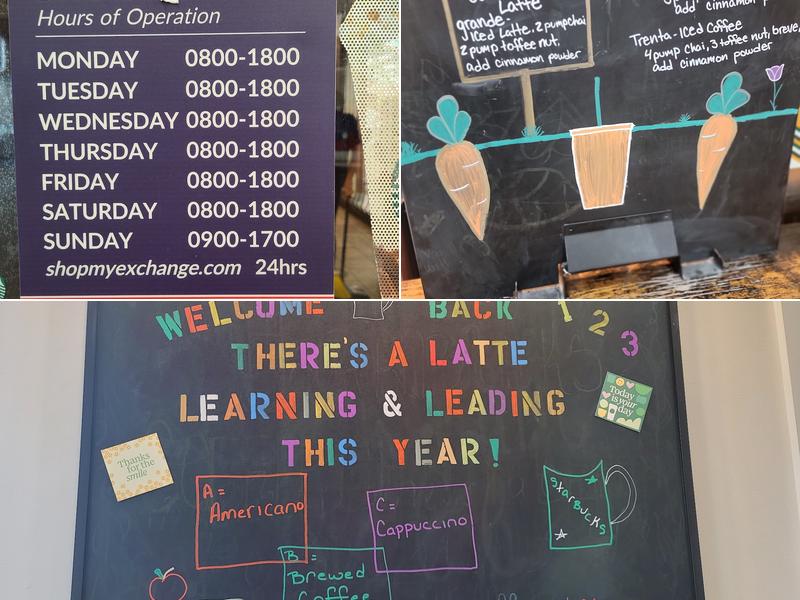 Hours of Operation
MONDAY 0800-1800
TUESDAY 0800-1800
WEDNESDAY 0800-1800
THURSDAY 0800-1800
FRIDAY 0800-1800
SATURDAY 0800-1800
SUNDAY 0900-1700
shopmyexchange.com 24hrs
Latte
grande-
Iced Latte, 2 pump chai
2 pump toffee nut,
add cinnamon powder
add cinnamon p
Trenta-Iced Coffee
4 pump chai, 3 toffee nut, breve,
add cinnamon powder
WELCOME BACK 1 2 3
THERE'S A LATTE
LEARNING & LEADING
THIS YEAR!
Today is your day
Thanks
for the
smile
A =
Americano
C =
Cappuccino
STARBUCKS
B =
Brewed
Coffee